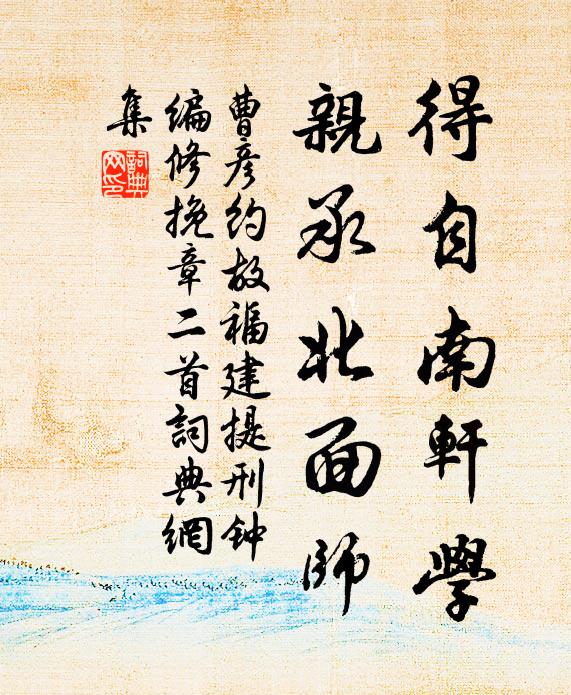 得自南軒學
親承北面師
曹彦約故福建提刑钟
编修挽章二首詞典網
集
詞典
网印